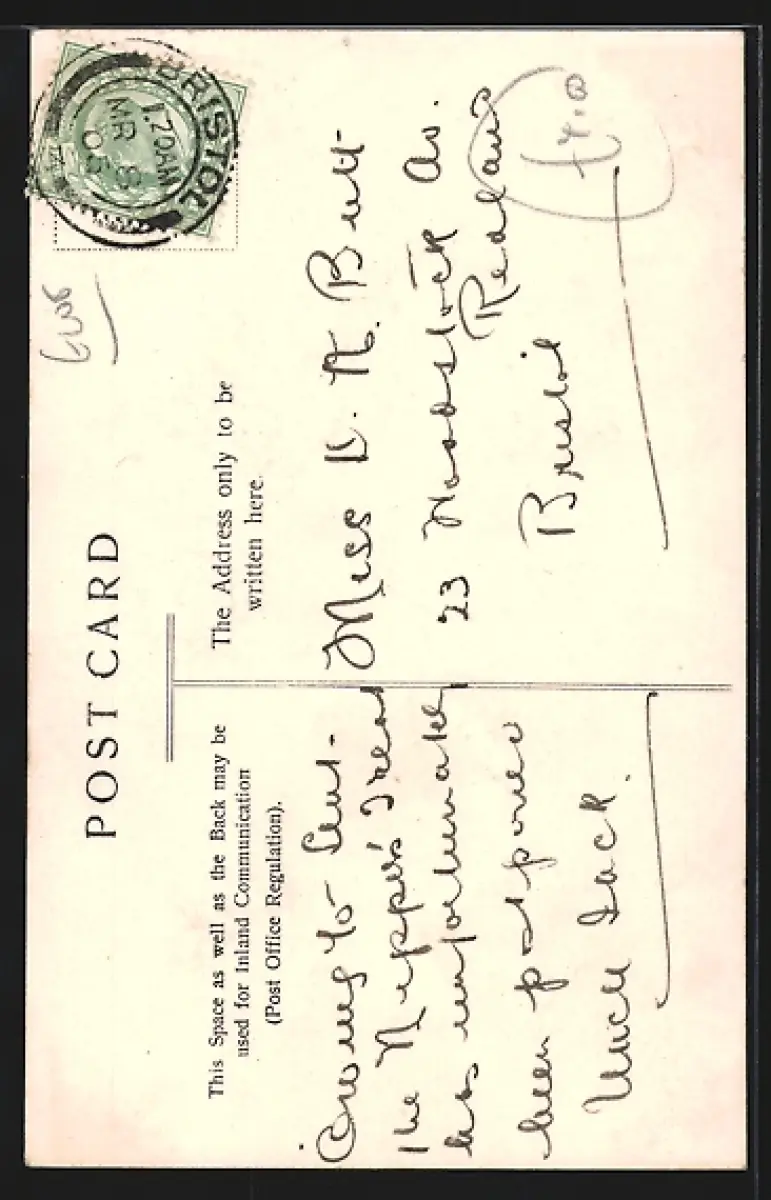 POST CARD
This Space as well as the Back may be
used for Inland Communication
(Post Office Regulation).
The Address only to be
written here.
BRISTOL
1.20AM
MR 8
06
Owing to Lent-
the Nipper's Treat
has unfortunately
been postponed
Uncle Jack.
Miss D. A. Butt
23 Woodstock Av.
Redland
Bristol